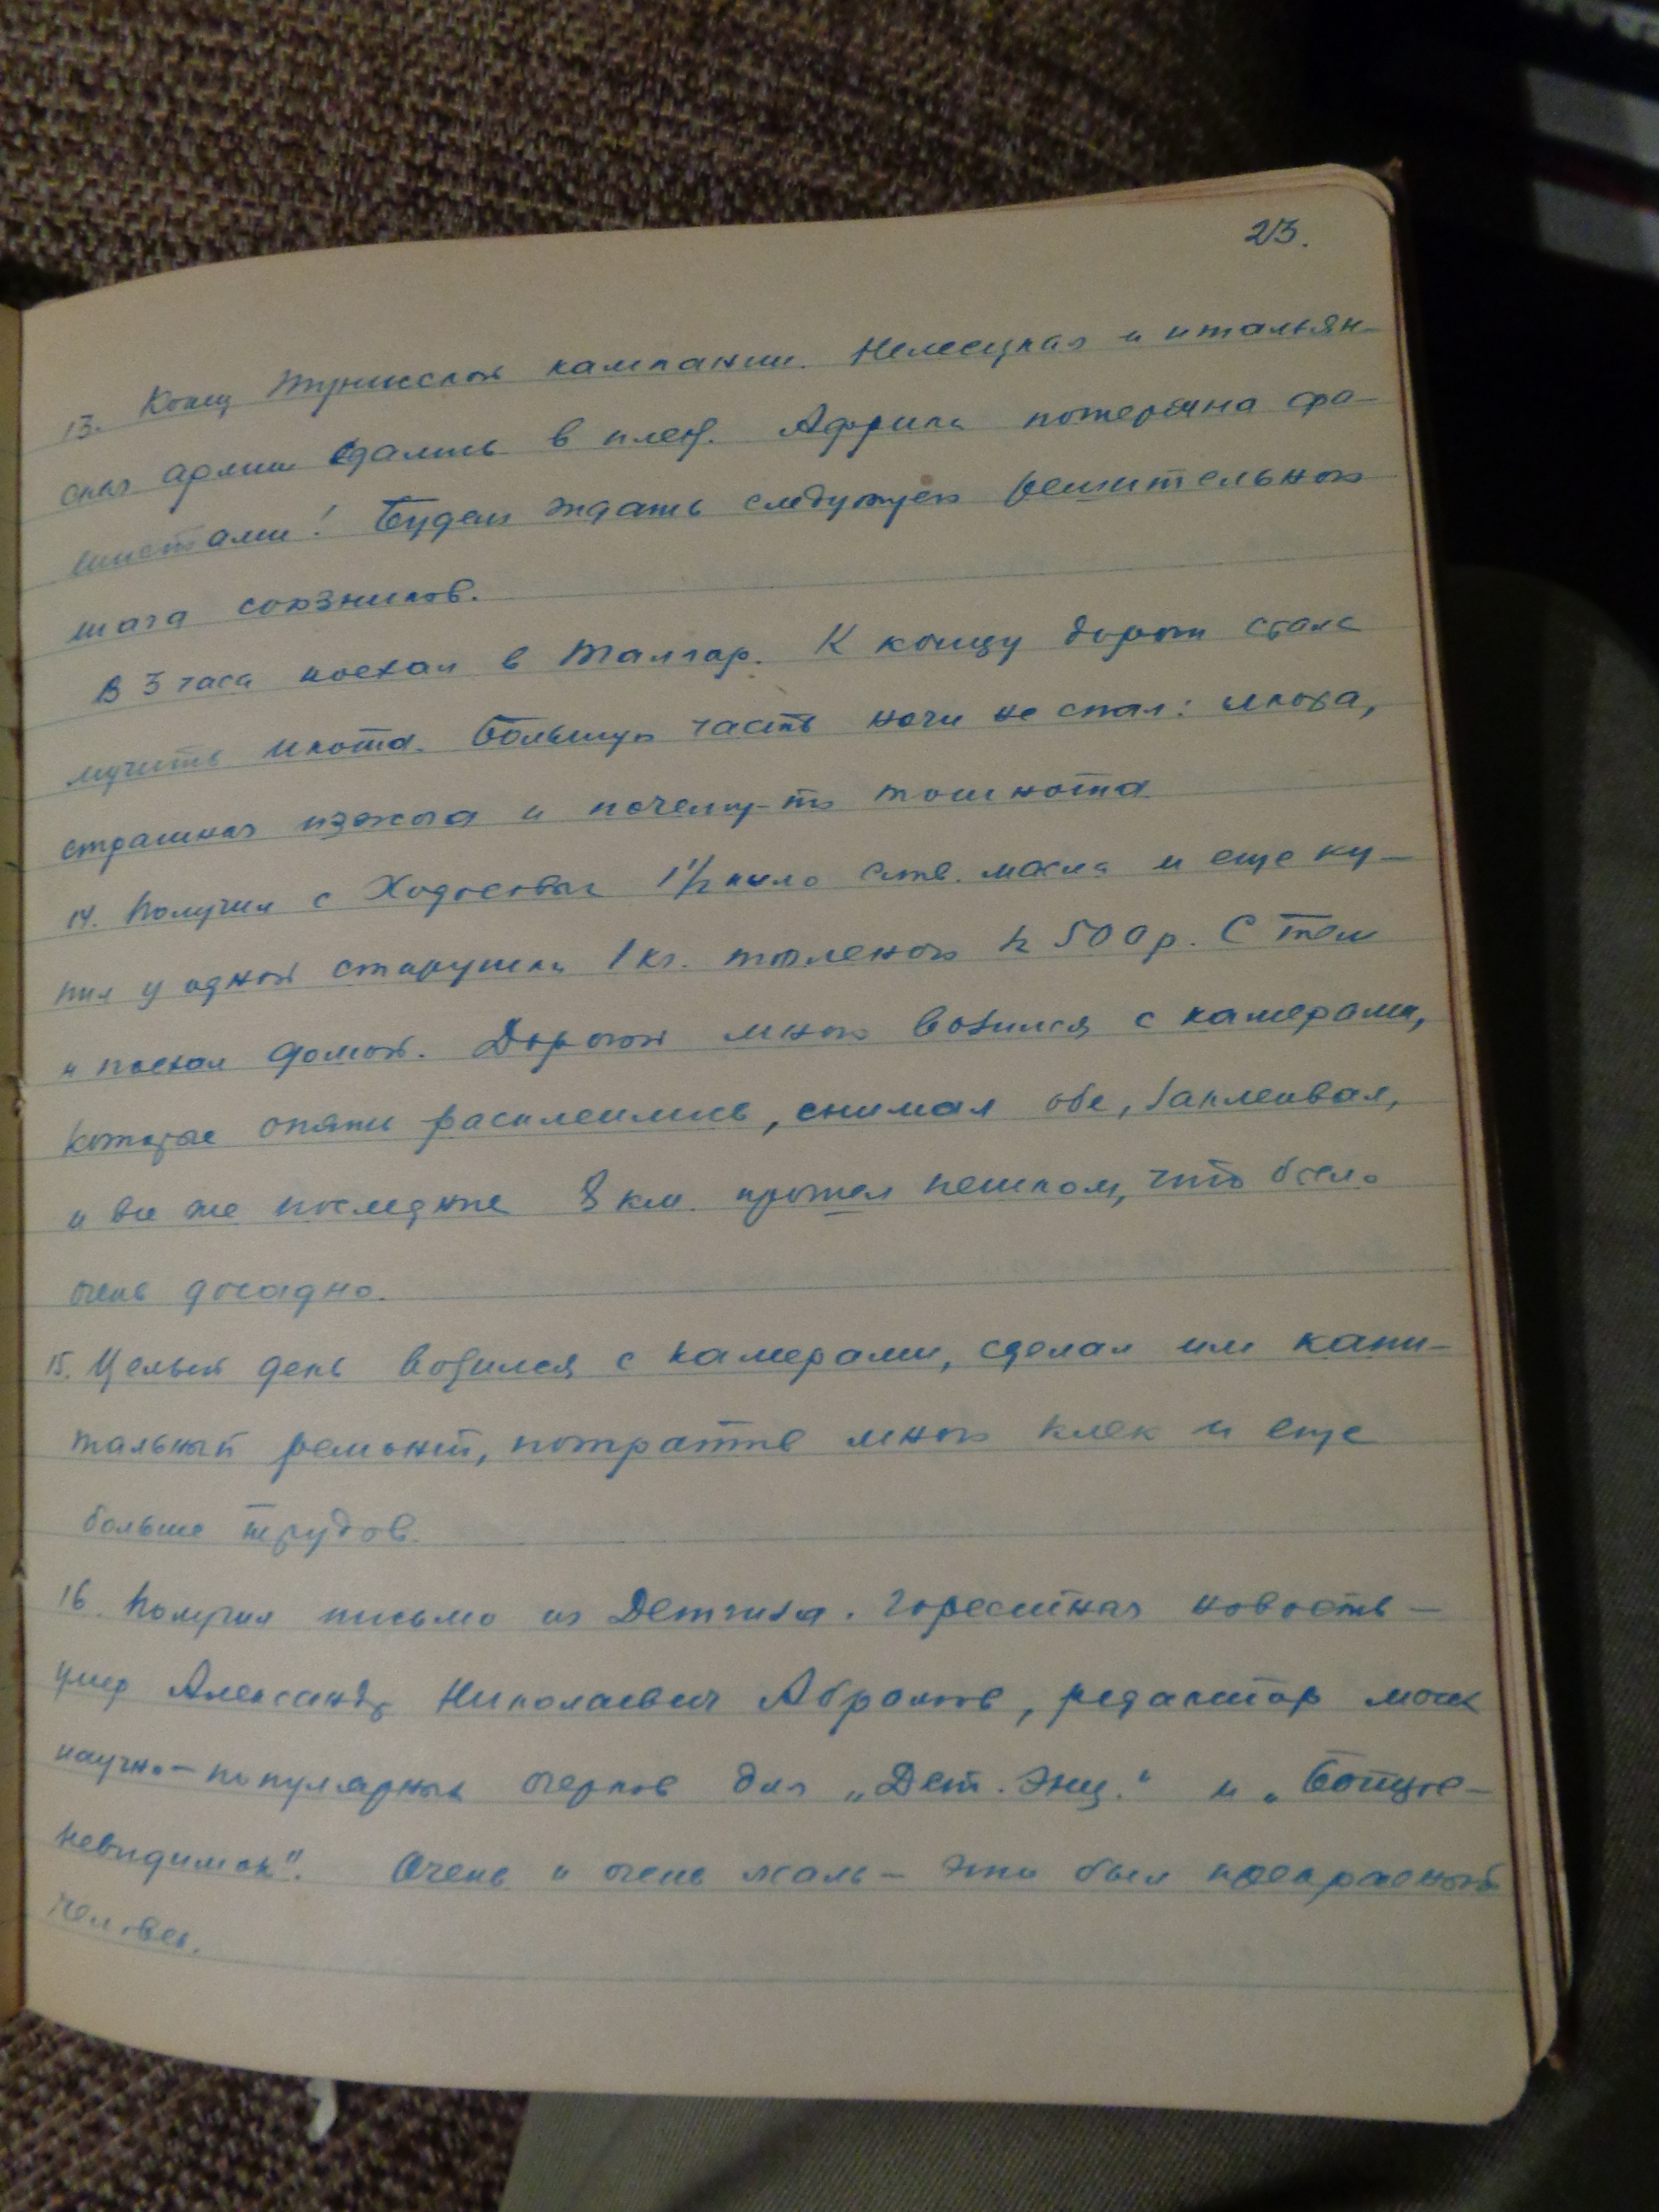 23.
13. Конец тунисской кампании. Немецкая и итальян-
ская армии сдались в плен. Африка потеряна фа-
шистами! Будем ждать следующего решительного
шага союзников.
В 3 часа поехал в Талгар. К концу дороги стала
мучить икота. Большую часть ночи не спал: икота,
страшная изжога и почему-то тошнота.
14. Получил с 1½ кило слив. масла и еще ку-
пил у одной старушки 1 кг. топленого за 500 р. С тем
и поехал домой. Дорогой много возился с камерами,
которые опять расклеились, снимал обе, заклеивал,
и все же последние 8 км. прошел пешком, что было
очень досадно.
15. Целый день возился с камерами, сделал им капи-
тальный ремонт, потратив много клея и еще
больше трудов.
16. Получил письмо из Детгиза. Горестная новость –
умер Александр Николаевич Абрамов, редактор моих
научно-популярных очерков для „Дет. Энц." и „Бойцов-
невидимок". Очень и очень жаль – это был прекрасный
человек.